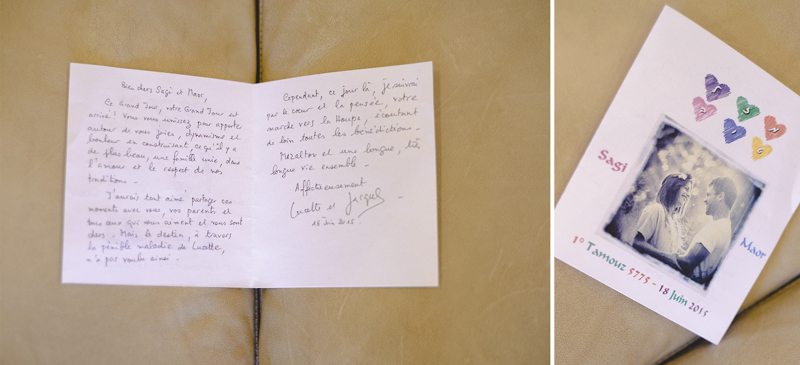 Bien chers Sagi et Maor,
Ce Grand Jour, votre Grand Jour est
arrivé ! Vous vous unissez pour apporter
autour de vous joies, dynamisme et
bonheur en construisant ce qu'il y a
de plus beau, une famille unie, dans
l'amour et le respect de nos
traditions.
J'aurais tant aimé partager ces
moments avec vous, vos parents et
tous ceux qui vous aiment et vous sont
chers. Mais le destin, à travers
la pénible maladie de Lucette,
n'a pas voulu ainsi.
Cependant, ce jour là, je suivrai
par le cœur et la pensée, votre
marche vers la Houpa, écoutant
de loin toutes les bénédictions.
Mazaltov et une longue, très
longue vie ensemble.
Affectueusement
Lucette et Jacques
18 Juin 2015.
Sagi
Maor
1° Tamouz 5775 - 18 Juin 2015